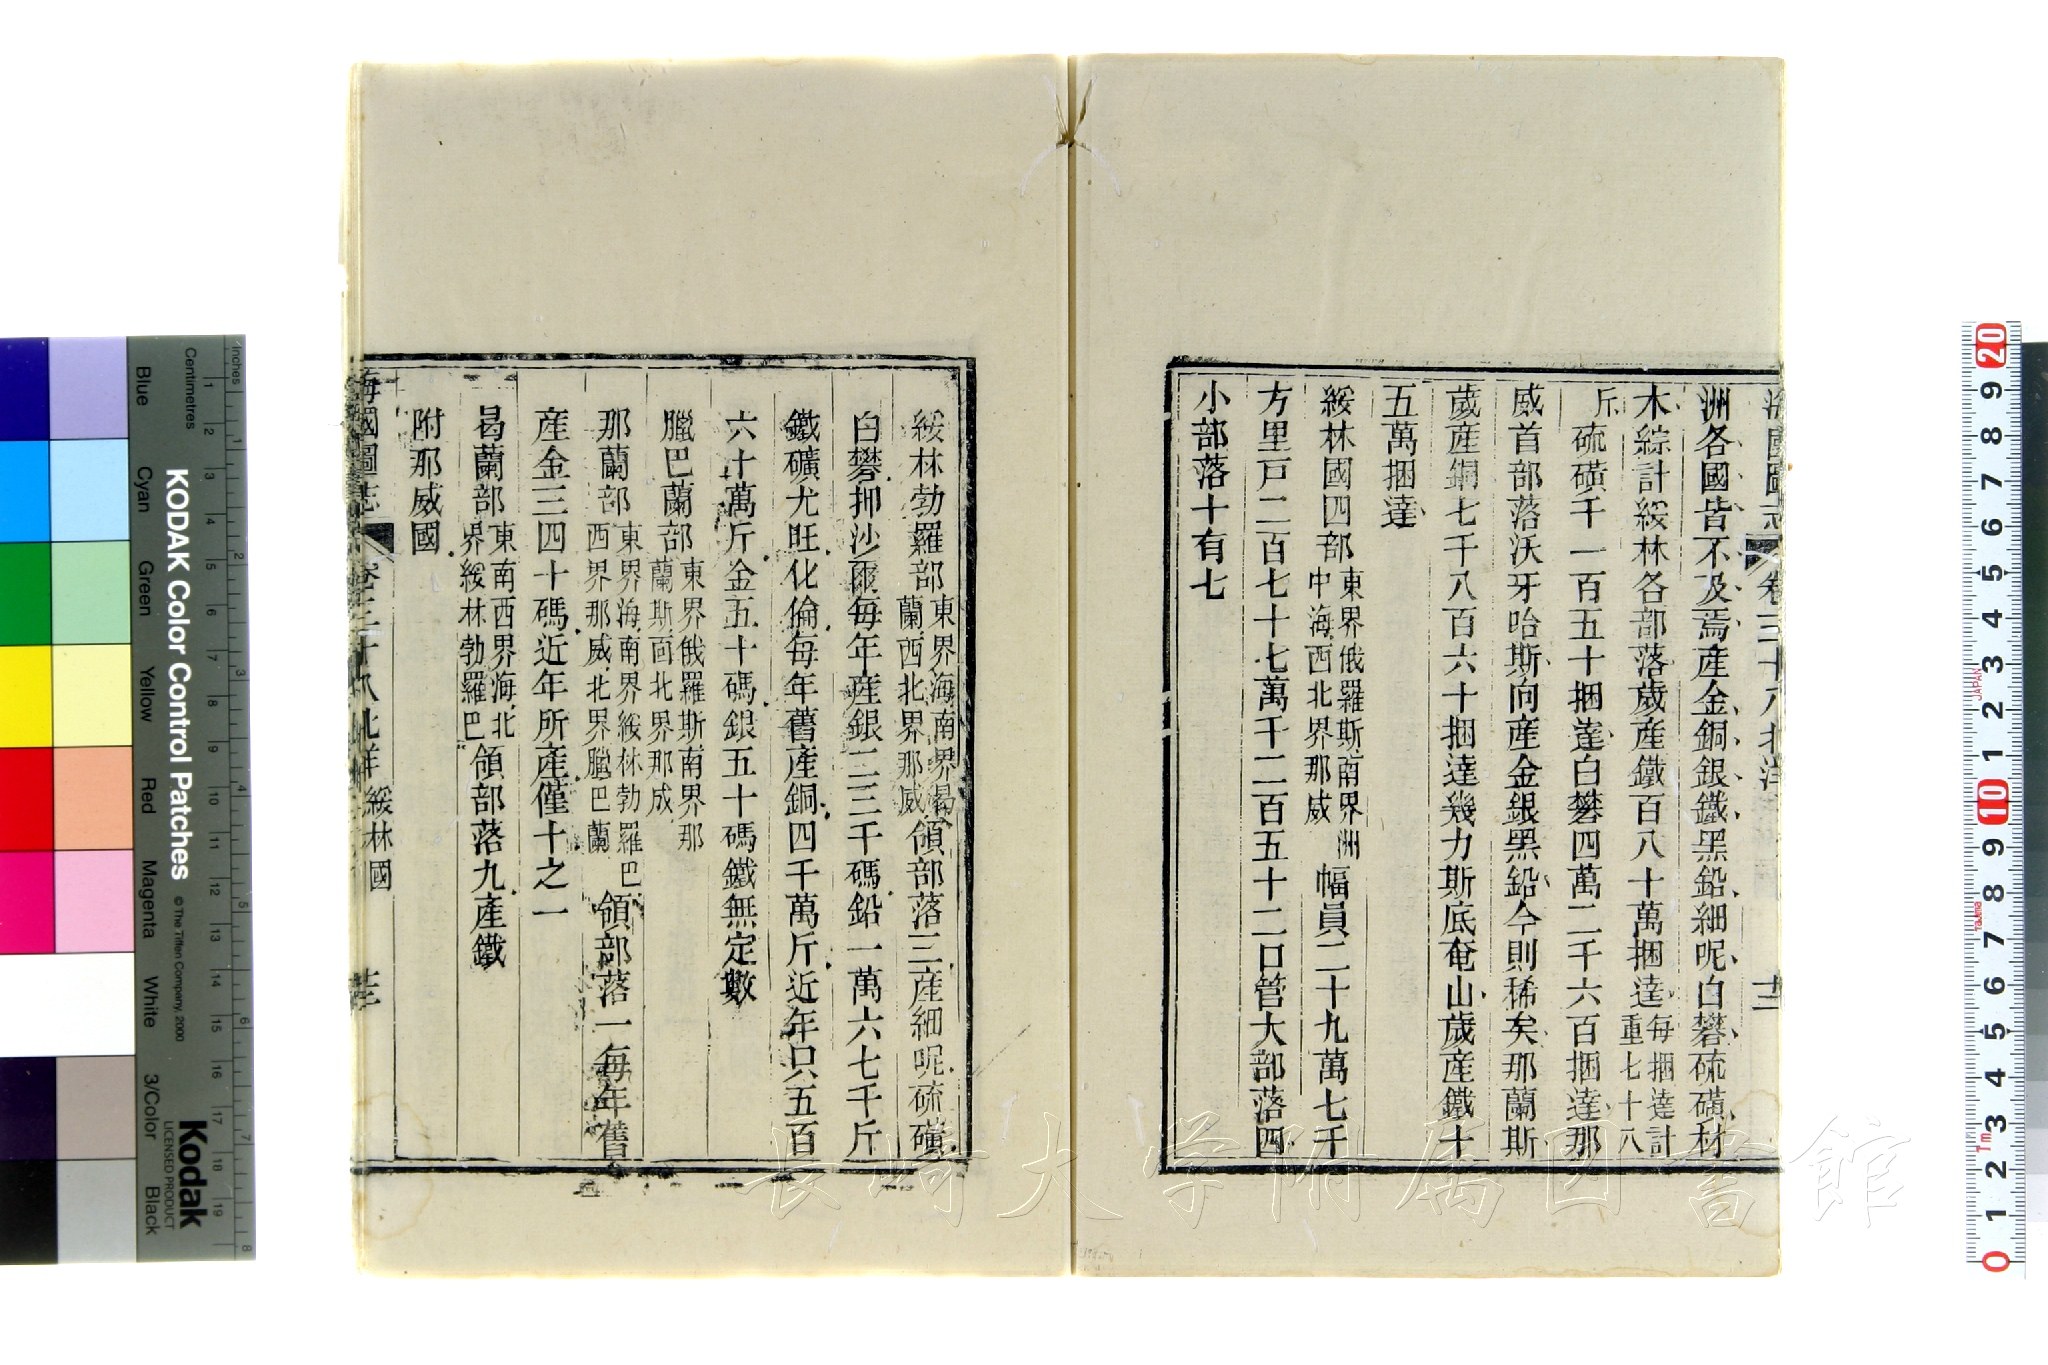 海國圖志 卷三十八北洋 十二
洲各國皆不及焉產金銅銀鐵黑鉛細呢白礬硫磺材
木綜計綏林各部落歲產鐵百八十萬捆達每捆達計重七十八
斤硫磺千一百五十捆達白礬四萬二千六百捆達那
威首部落沃牙哈斯向產金銀黑鉛今則稀矣那蘭斯
歲產銅七千八百六十捆達幾力斯底奄山歲產鐵十
五萬捆達
綏林國四部東界俄羅斯南界洲中海西北界那威幅員二十九萬七千
方里戸二百七十七萬千二百五十二口管大部落四
小部落十有七
綏林勃羅部東界海南界曷蘭西北界那威領部落三產細呢硫磺
白礬抑沙爾每年產銀二三千碼鉛一萬六七千斤
鐵礦尤旺化倫每年舊產銅四千萬斤近年只五百
六十萬斤金五十碼銀五十碼鐵無定數
臘巴蘭部東界俄羅斯南界那蘭斯西北界那成
那蘭部東界海南界綏林勃羅巴西界那威北界臘巴蘭領部落一每年舊
產金三四十碼近年所產僅十之一
曷蘭部東南西界海北界綏林勃羅巴領部落九產鐵
附那威國
海國圖志 卷三十八北洋 綏林國 十三
KODAK Color Control Patches
© The Tiffen Company, 2000
Kodak
LICENSED PRODUCT
Inches
Centimetres
Blue Cyan Green Yellow Red Magenta White 3/Color Black
長崎大学附属図書館
JAPAN